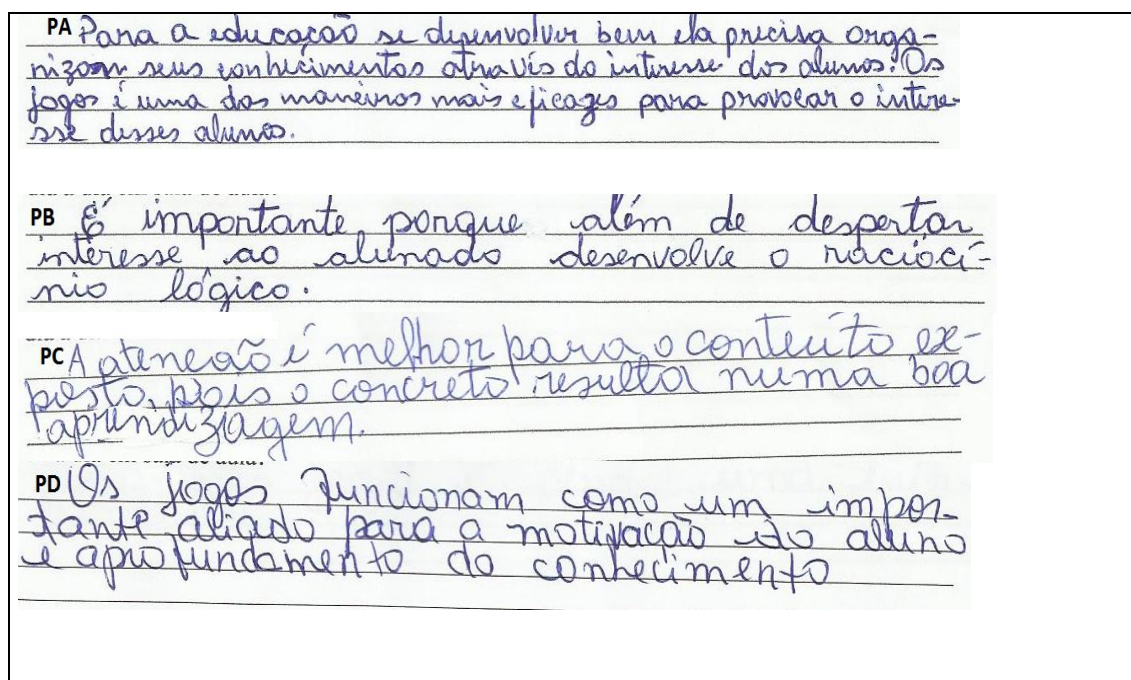 PA Para a educação se desenvolver bem ela precisa orga-
nizar seus conhecimentos através do interesse dos alunos. Os
jogos é uma das maneiras mais eficazes para provocar o intere-
sse desses alunos.
PB É importante, porque além de despertar
interesse ao alunado desenvolve o raciocí-
nio lógico.
PC A atenção é melhor para o conteúto ex-
posto, pois o concreto resulta numa boa
aprendizagem.
PD Os jogos funcionam como um impor-
tante aliado para a motivação do aluno
e aprofundamento do conhecimento